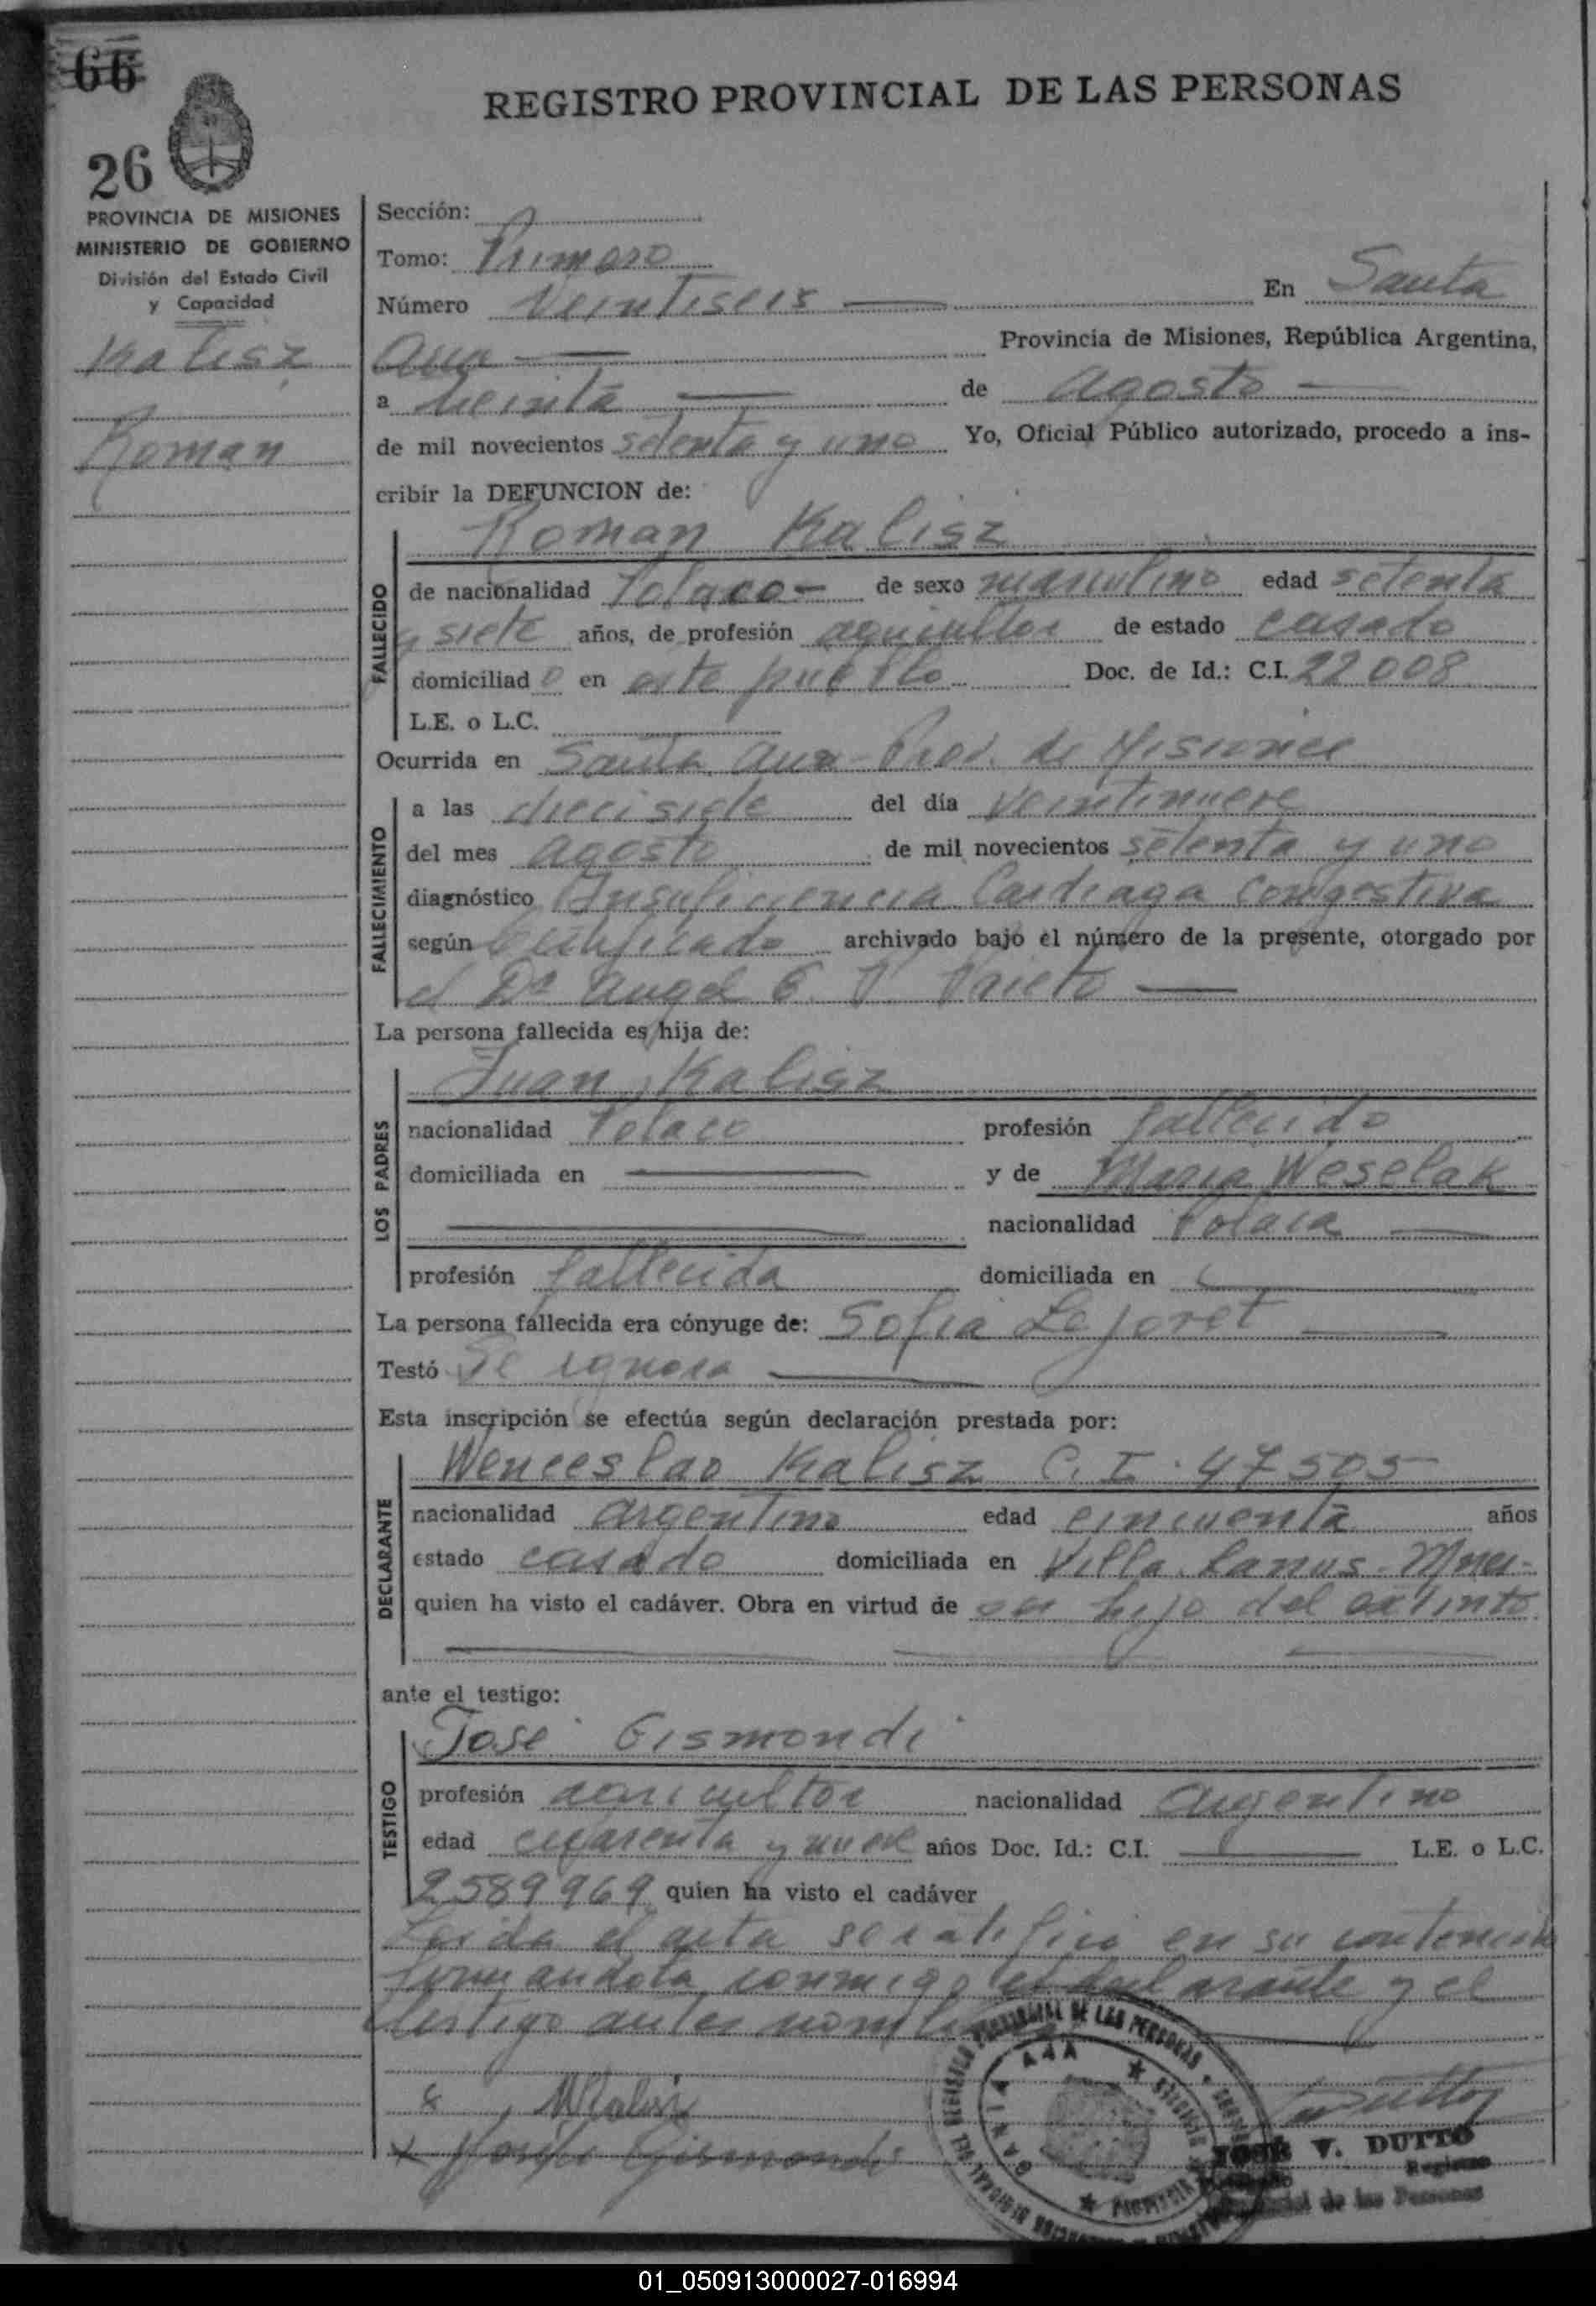 66
26
REGISTRO PROVINCIAL DE LAS PERSONAS
PROVINCIA DE MISIONES
MINISTERIO DE GOBIERNO
División del Estado Civil
y Capacidad
Kalisz
Roman
Sección:
Tomo: Primero
Número Veintiseis En Santa
Ana Provincia de Misiones, República Argentina,
a treinta de agosto
de mil novecientos setenta y uno Yo, Oficial Público autorizado, procedo a ins-
cribir la DEFUNCION de:
FALLECIDO
Roman Kalisz
de nacionalidad Polaco- de sexo masculino edad setenta
y siete años, de profesión agricultor de estado casado
domiciliado en este pueblo Doc. de Id.: C.I. 22008
L.E. o L.C.
Ocurrida en Santa Ana - Prov. de Misiones
FALLECIMIENTO
a las diecisiete del día veintinueve
del mes agosto de mil novecientos setenta y uno
diagnóstico Insuficiencia Cardiaga Congestiva
según Certificado archivado bajo el número de la presente, otorgado por
el Dr Angel C. V. Prieto
La persona fallecida es hija de:
LOS PADRES
Juan Kalisz
nacionalidad Polaco profesión fallecido
domiciliada en y de Maria Weselak
nacionalidad Polaca
profesión fallecida domiciliada en
La persona fallecida era cónyuge de: Sofia Lejoret
Testó Se ignora
Esta inscripción se efectúa según declaración prestada por:
DECLARANTE
Wenceslao Kalisz C.I. 47505
nacionalidad argentino edad cincuenta años
estado casado domiciliada en Villa Lanus - Mnes-
quien ha visto el cadáver. Obra en virtud de ser hijo del extinto
ante el testigo:
TESTIGO
Jose Gismondi
profesión agricultor nacionalidad argentino
edad cuarenta y nueve años Doc. Id.: C.I. L.E. o L.C.
2589969 quien ha visto el cadáver
Leida el acta se ratifica en su contenido
firmandola conmigo el declarante y el
testigo antes
WKalisz
Gismondi
JOSÉ V. DUTTO
Registro
Provincial de las Personas
01_050913000027-016994